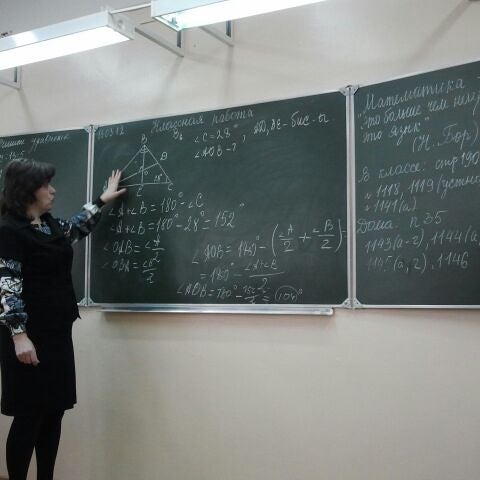 16.05.12 Классная работа
B
D
E
C
28°
∠C = 28°, AD, BE - бис-ы
∠AOB - ?
∠A + ∠B = 180° - ∠C
∠A + ∠B = 180° - 28° = 152°
∠OAB = ∠A/2
∠OBA = ∠B/2
∠AOB = 180° - (∠A/2 + ∠B/2) =
= 180° - ∠A+∠B/2
∠AOB = 180° - 152/2 = 104°
Математика
это больше чем наука
это язык"
(Н. Бор)
В классе: стр 190
1118, 1119 (устно)
1141(а)
Дома: п 35
1143(а-г), 1144(а
1145(а, г), 1146